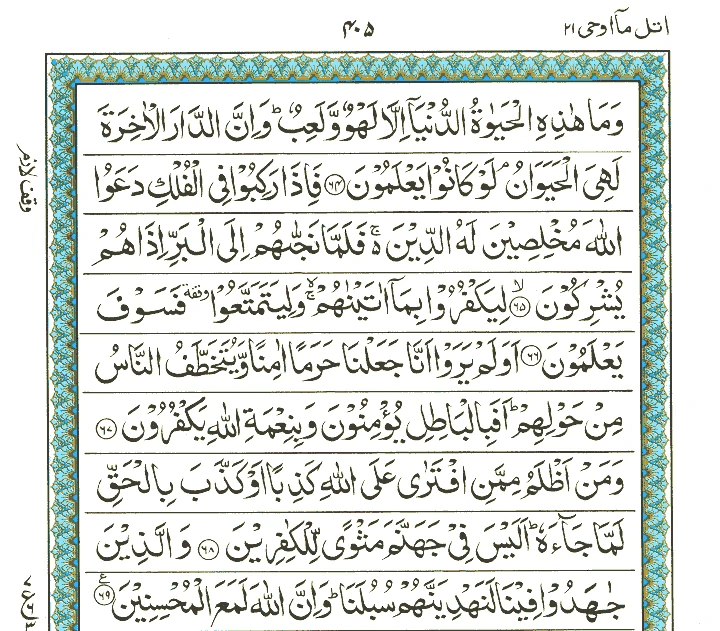 اتل مآ اوحی ۲۱
۴۰۵
وَمَا هٰذِهِ الْحَيٰوةُ الدُّنْيَآ اِلَّا لَهْوٌ وَّلَعِبٌ ؕ وَاِنَّ الدَّارَ الْاٰخِرَةَ
لَهِيَ الْحَيَوَانُ ۘ لَوْ كَانُوْا يَعْلَمُوْنَ ۶۴ فَاِذَا رَكِبُوْا فِي الْفُلْكِ دَعَوُا
اللّٰهَ مُخْلِصِيْنَ لَهُ الدِّيْنَ ۚ۬ فَلَمَّا نَجّٰىهُمْ اِلَى الْبَرِّ اِذَا هُمْ
يُشْرِكُوْنَ ۙ ۶۵ لِيَكْفُرُوْا بِمَآ اٰتَيْنٰهُمْ ۚۙ وَلِيَتَمَتَّعُوْا وقفه فَسَوْفَ
يَعْلَمُوْنَ ۶۶ اَوَلَمْ يَرَوْا اَنَّا جَعَلْنَا حَرَمًا اٰمِنًا وَّيُتَخَطَّفُ النَّاسُ
مِنْ حَوْلِهِمْ ؕ اَفَبِالْبَاطِلِ يُؤْمِنُوْنَ وَبِنِعْمَةِ اللّٰهِ يَكْفُرُوْنَ ۶۷
وَمَنْ اَظْلَمُ مِمَّنِ افْتَرٰى عَلَى اللّٰهِ كَذِبًا اَوْ كَذَّبَ بِالْحَقِّ
لَمَّا جَآءَهٗ ؕ اَلَيْسَ فِيْ جَهَنَّمَ مَثْوًى لِّلْكٰفِرِيْنَ ۶۸ وَالَّذِيْنَ
جٰهَدُوْا فِيْنَا لَنَهْدِيَنَّهُمْ سُبُلَنَا ؕ وَاِنَّ اللّٰهَ لَمَعَ الْمُحْسِنِيْنَ ۶۹ ع
وقف لازم